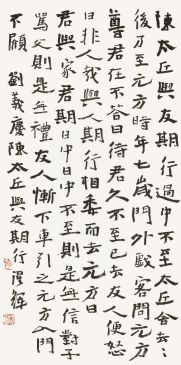 陳太丘與友期行過中不至太丘舍去〻
後乃至元方時年七歲門外戲客問元方
尊君在不答曰待君久不至已去友人便怒
曰非人哉與人期行相委而去元方曰
君與家君期日中日中不至則是無信對子
罵父則是無禮友人慚下車引之元方入門
不顧 劉義慶陳太丘與友期行